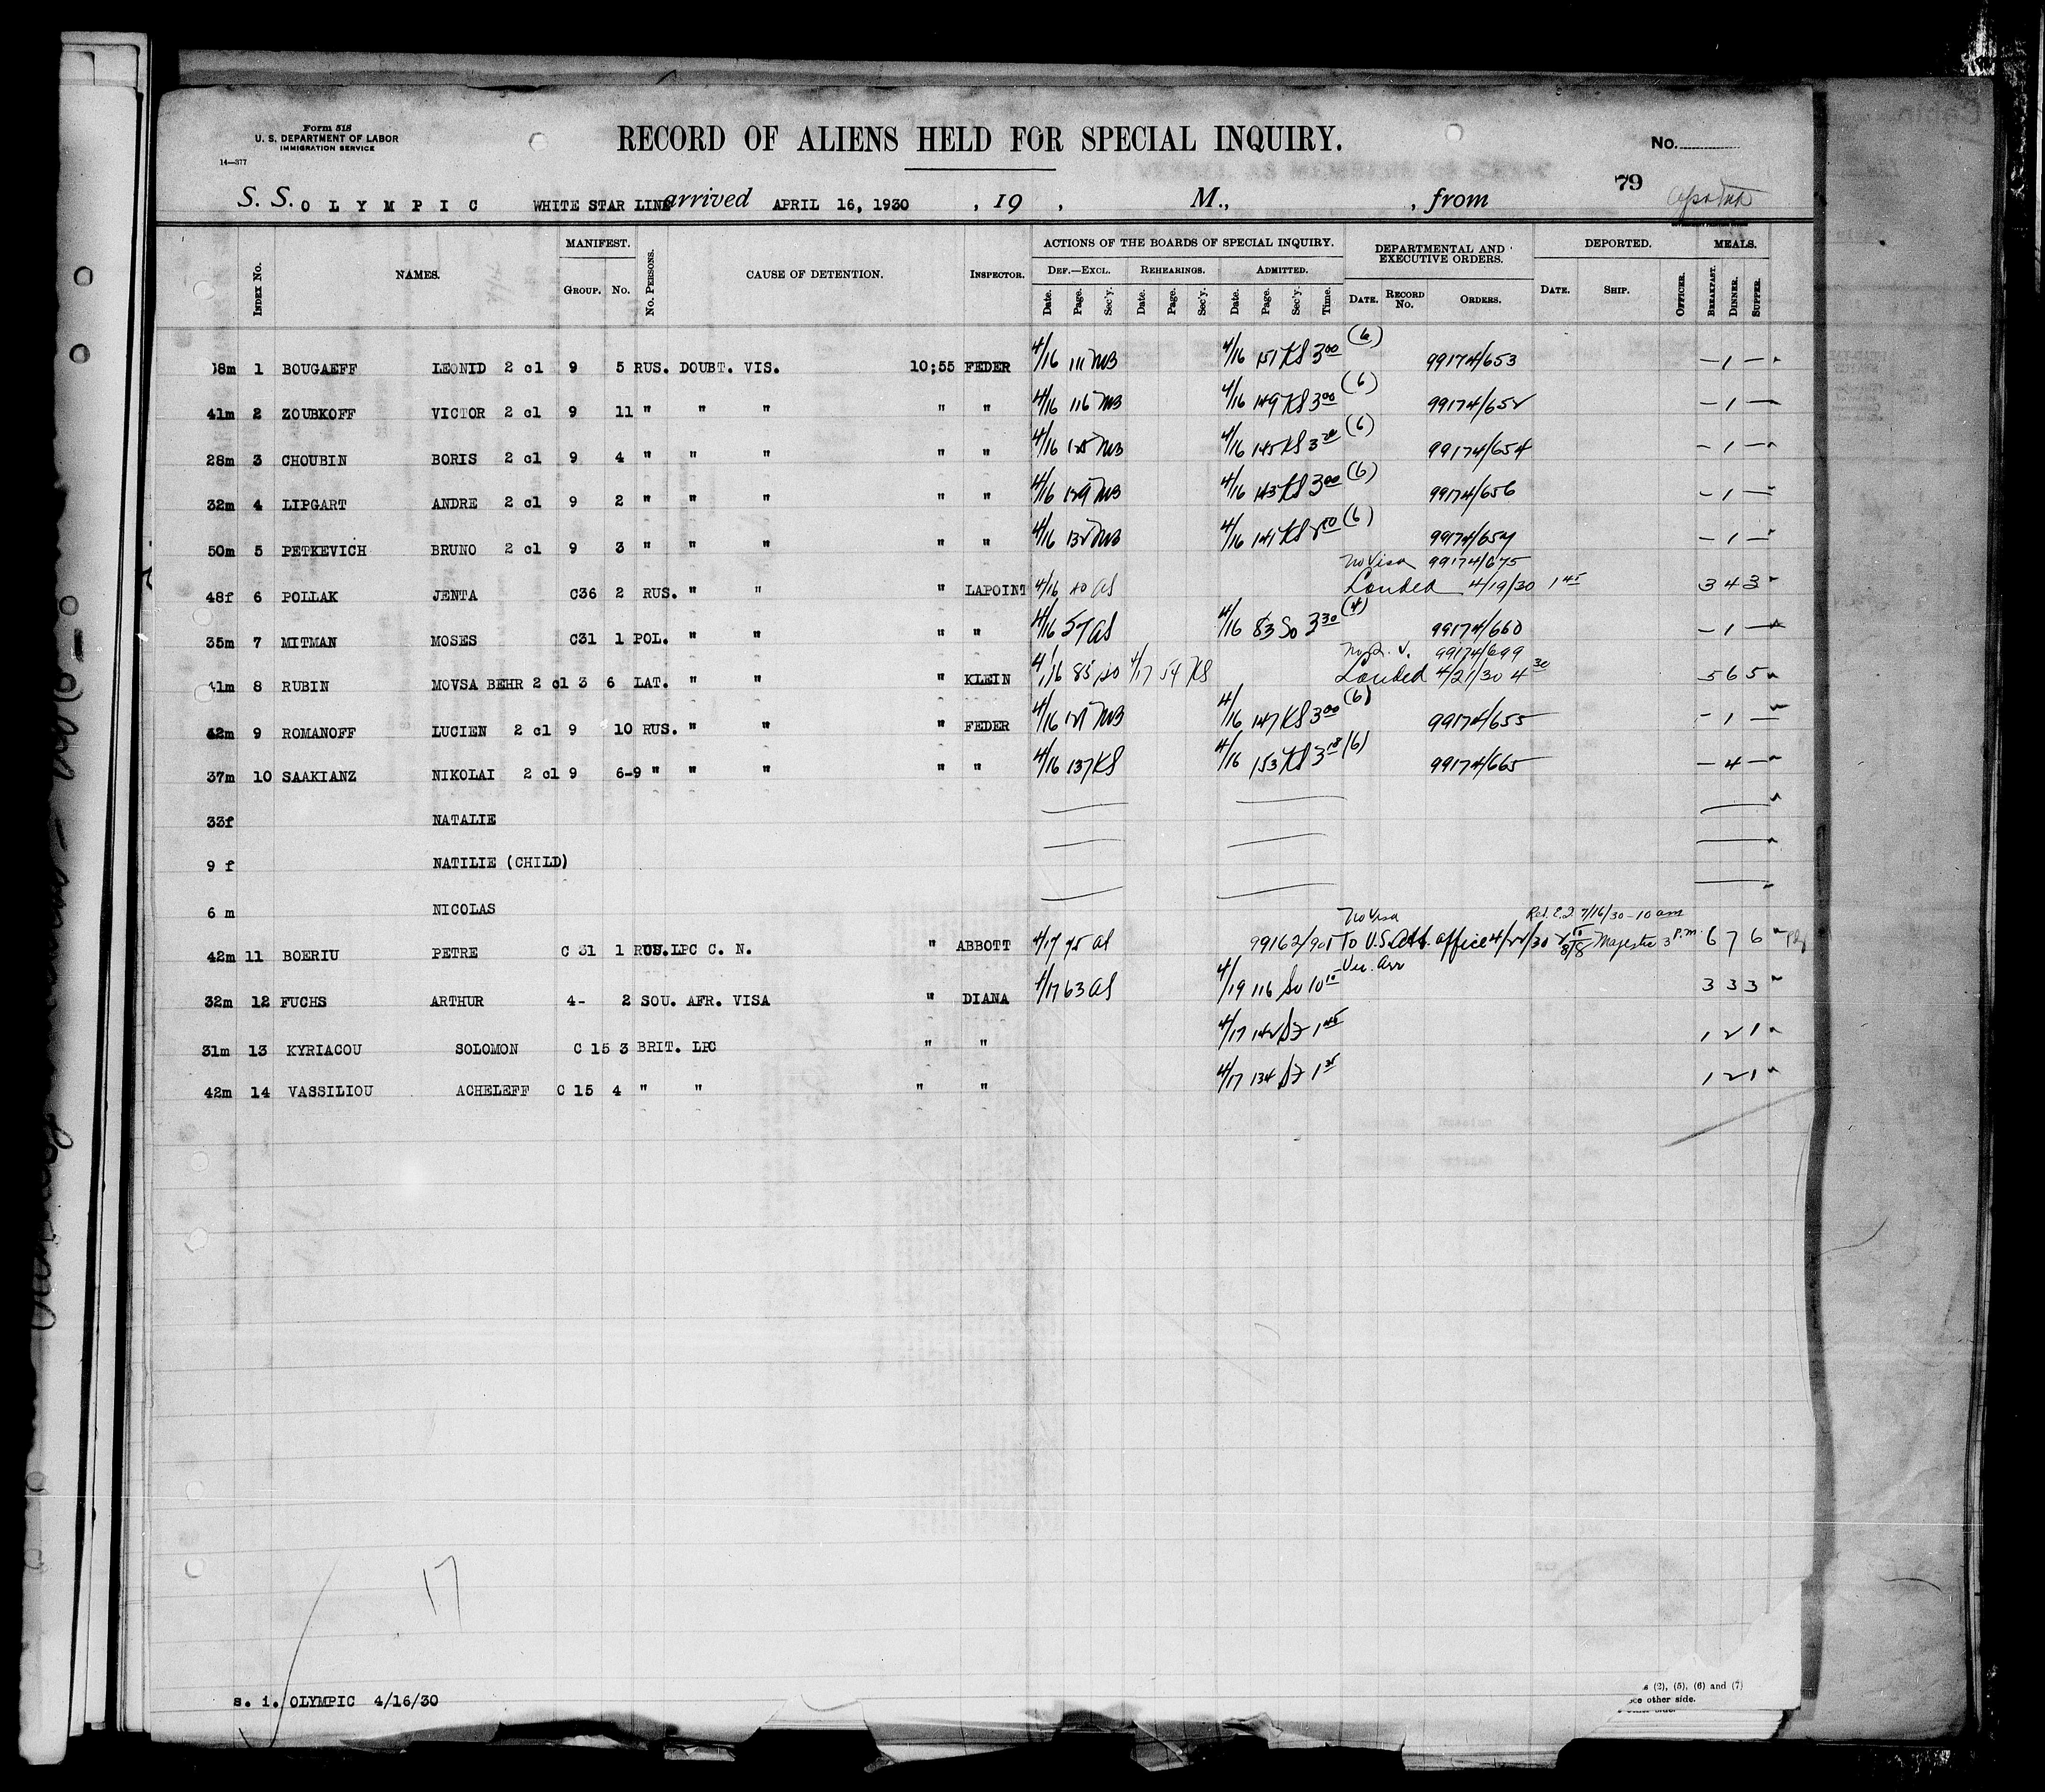 Form 518
U. S. DEPARTMENT OF LABOR
IMMIGRATION SERVICE
14—377
RECORD OF ALIENS HELD FOR SPECIAL INQUIRY.
No.
79
S. S. OLYMPIC WHITE STAR LINE arrived APRIL 16, 1930 , 19 , M., , from
INDEX No. NAMES. MANIFEST. GROUP. No. No. PERSONS. CAUSE OF DETENTION. INSPECTOR. ACTIONS OF THE BOARDS OF SPECIAL INQUIRY. DEPARTMENTAL AND EXECUTIVE ORDERS. DEPORTED. MEALS.
DEF.—EXCL. REHEARINGS. ADMITTED.
Date. Page. Sec'y. Date. Page. Sec'y. Date. Page. Sec'y. Time. DATE. RECORD No. ORDERS. DATE. SHIP. OFFICER. BREAKFAST. DINNER. SUPPER.
18m 1 BOUGAEFF LEONID 2 cl 9 5 RUS. DOUBT. VIS. 10;55 FEDER 4/16 111 MB 4/16 151 KS 3 00 (6) 99174/653 — 1 —
41m 2 ZOUBKOFF VICTOR 2 cl 9 11 " " " " " 4/16 116 MB 4/16 149 KS 3 00 (6) 99174/652 — 1 —
28m 3 CHOUBIN BORIS 2 cl 9 4 " " " " " 4/16 125 MB 4/16 145 KS (6) 99174/654 — 1 —
32m 4 LIPGART ANDRE 2 cl 9 2 " " " " " 4/16 129 MB 4/16 143 KS 3 00 (6) 99174/656 — 1 —
50m 5 PETKEVICH BRUNO 2 cl 9 3 " " " " " 4/16 132 MB 4/16 141 KS (6) 99174/657 — 1 —
No Visa 99174/675
48f 6 POLLAK JENTA C36 2 RUS. " " " LAPOINT 4/16 20 AS Landed 4/19/30 1 45 3 4 3
35m 7 MITMAN MOSES C31 1 POL. " " " " 4/16 57 AS 4/16 83 So 3 30 (4) 99174/660 — 1 —
99174/699
41m 8 RUBIN MOVSA BEHR 2 cl 3 6 LAT. " " " KLEIN 4/16 85 so 4/17 54 KS Landed 4/21/30 4 30 5 6 5
42m 9 ROMANOFF LUCIEN 2 cl 9 10 RUS. " " " FEDER 4/16 121 MB 4/16 147 KS 3 00 (6) 99174/655 — 1 —
37m 10 SAAKIANZ NIKOLAI 2 cl 9 6-9 " " " " " 4/16 137 KS 4/16 153 KS 3 18 (6) 99174/665 — 4 —
33f NATALIE
9 f NATILIE (CHILD)
6 m NICOLAS
No Visa Rel. E.I. 7/16/30 - 10 am
42m 11 BOERIU PETRE C 31 1 LPC C. N. " ABBOTT 4/17 75 AS 99162/901 To U.S. Att. office 4/22/30 8/8 Majestic 3 P.m. 6 7 6
32m 12 FUCHS ARTHUR 4- 2 SOU. AFR. VISA " DIANA 4/17 63 AS 4/19 116 So 10 10 Ver. Arr 3 3 3
31m 13 KYRIACOU SOLOMON C 15 3 BRIT. LPC " " 4/17 142 1 45 1 2 1
42m 14 VASSILIOU ACHELEFF C 15 4 " " " " 4/17 134 1 35 1 2 1
17
s. i. OLYMPIC 4/16/30
(2), (5), (6) and (7)
other side.